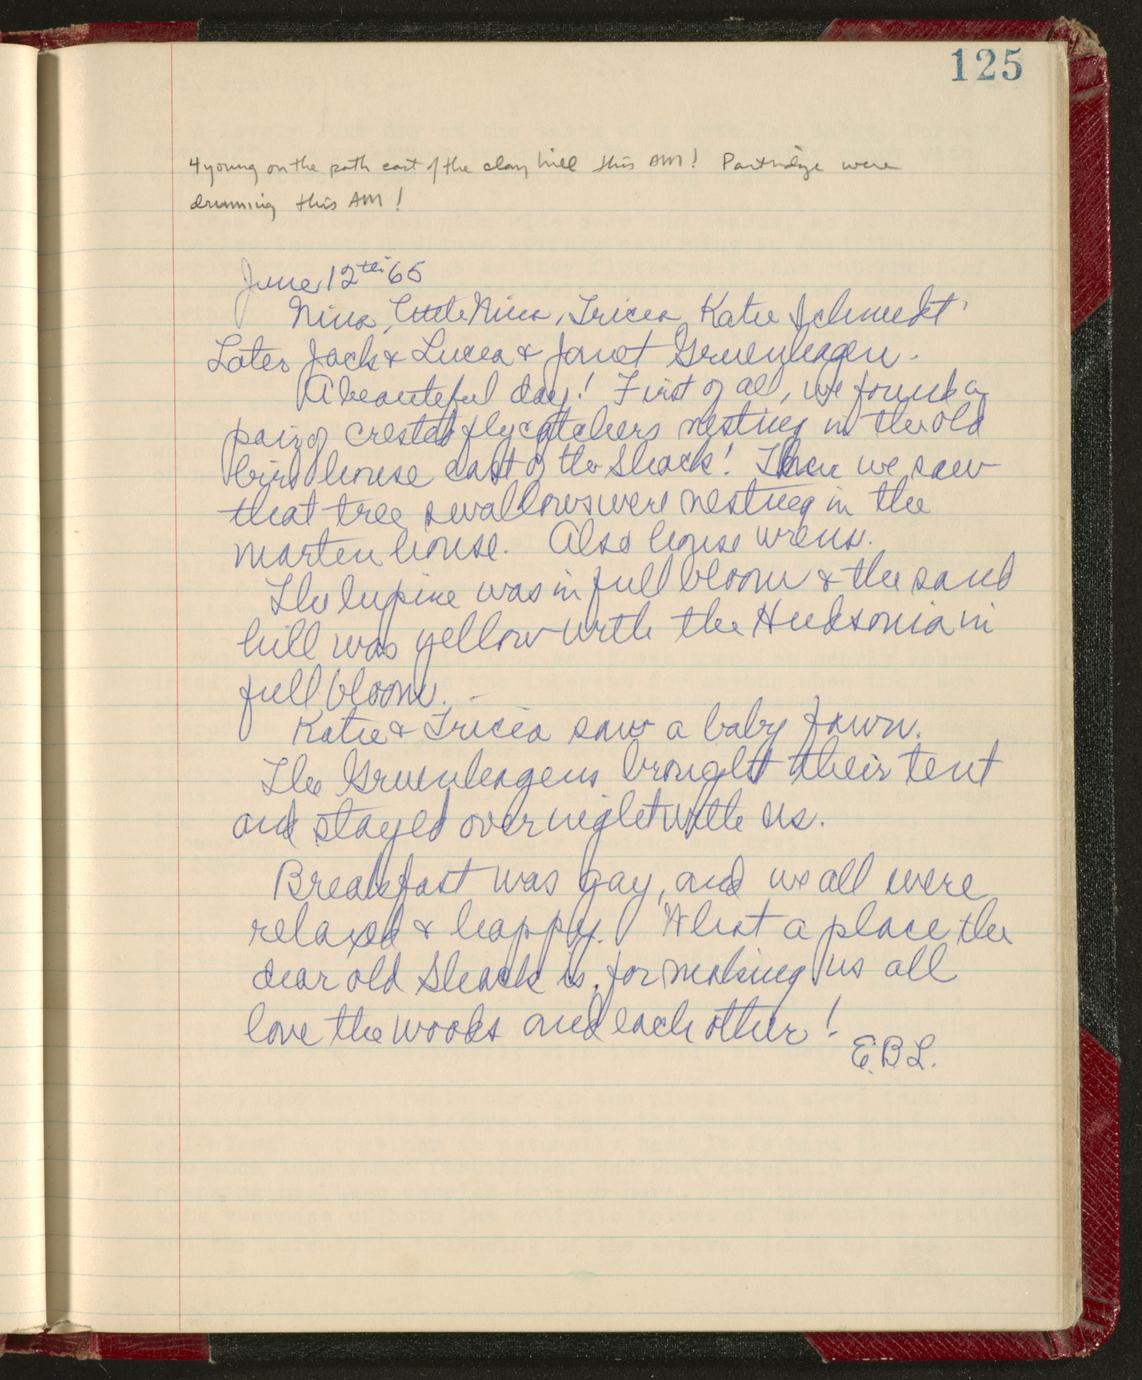 125
4 young on the path east of the clay hill this AM! Partridge were
drumming this AM!
June 12th 65
Nina, Little Nina, Tricia, Katie Schmidt
Later Jack & Lucia & Janet Gruenhagen.
A beautiful day! First of all, we found a
pair of crested flycatchers nesting in the old
bird house east of the Shack! Then we saw
that tree swallows were nesting in the
marten house. Also house wrens.
The lupine was in full bloom & the sand
hill was yellow with the Hudsonia in
full bloom.
Katie & Tricia saw a baby fawn.
The Gruenhagens brought their tent
and stayed overnight with us.
Breakfast was gay, and we all were
relaxed & happy. What a place the
dear old Shack is, for making us all
love the woods and each other!
E.B.L.